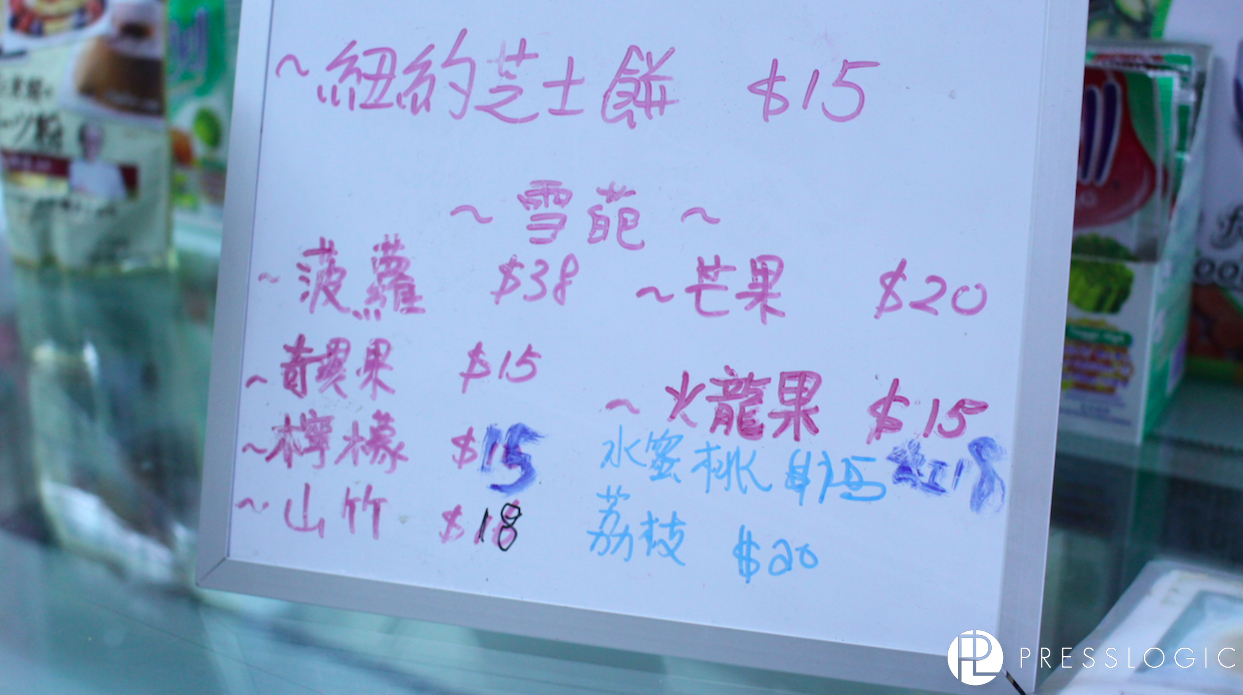 ~紐約芝士餅 $15
~雪葩~
~菠蘿 $38
~芒果 $20
~奇異果 $15
~火龍果 $15
紅18
~檸檬 $15
水蜜桃 $15
~山竹 $18
荔枝 $20
PRESSLOGIC